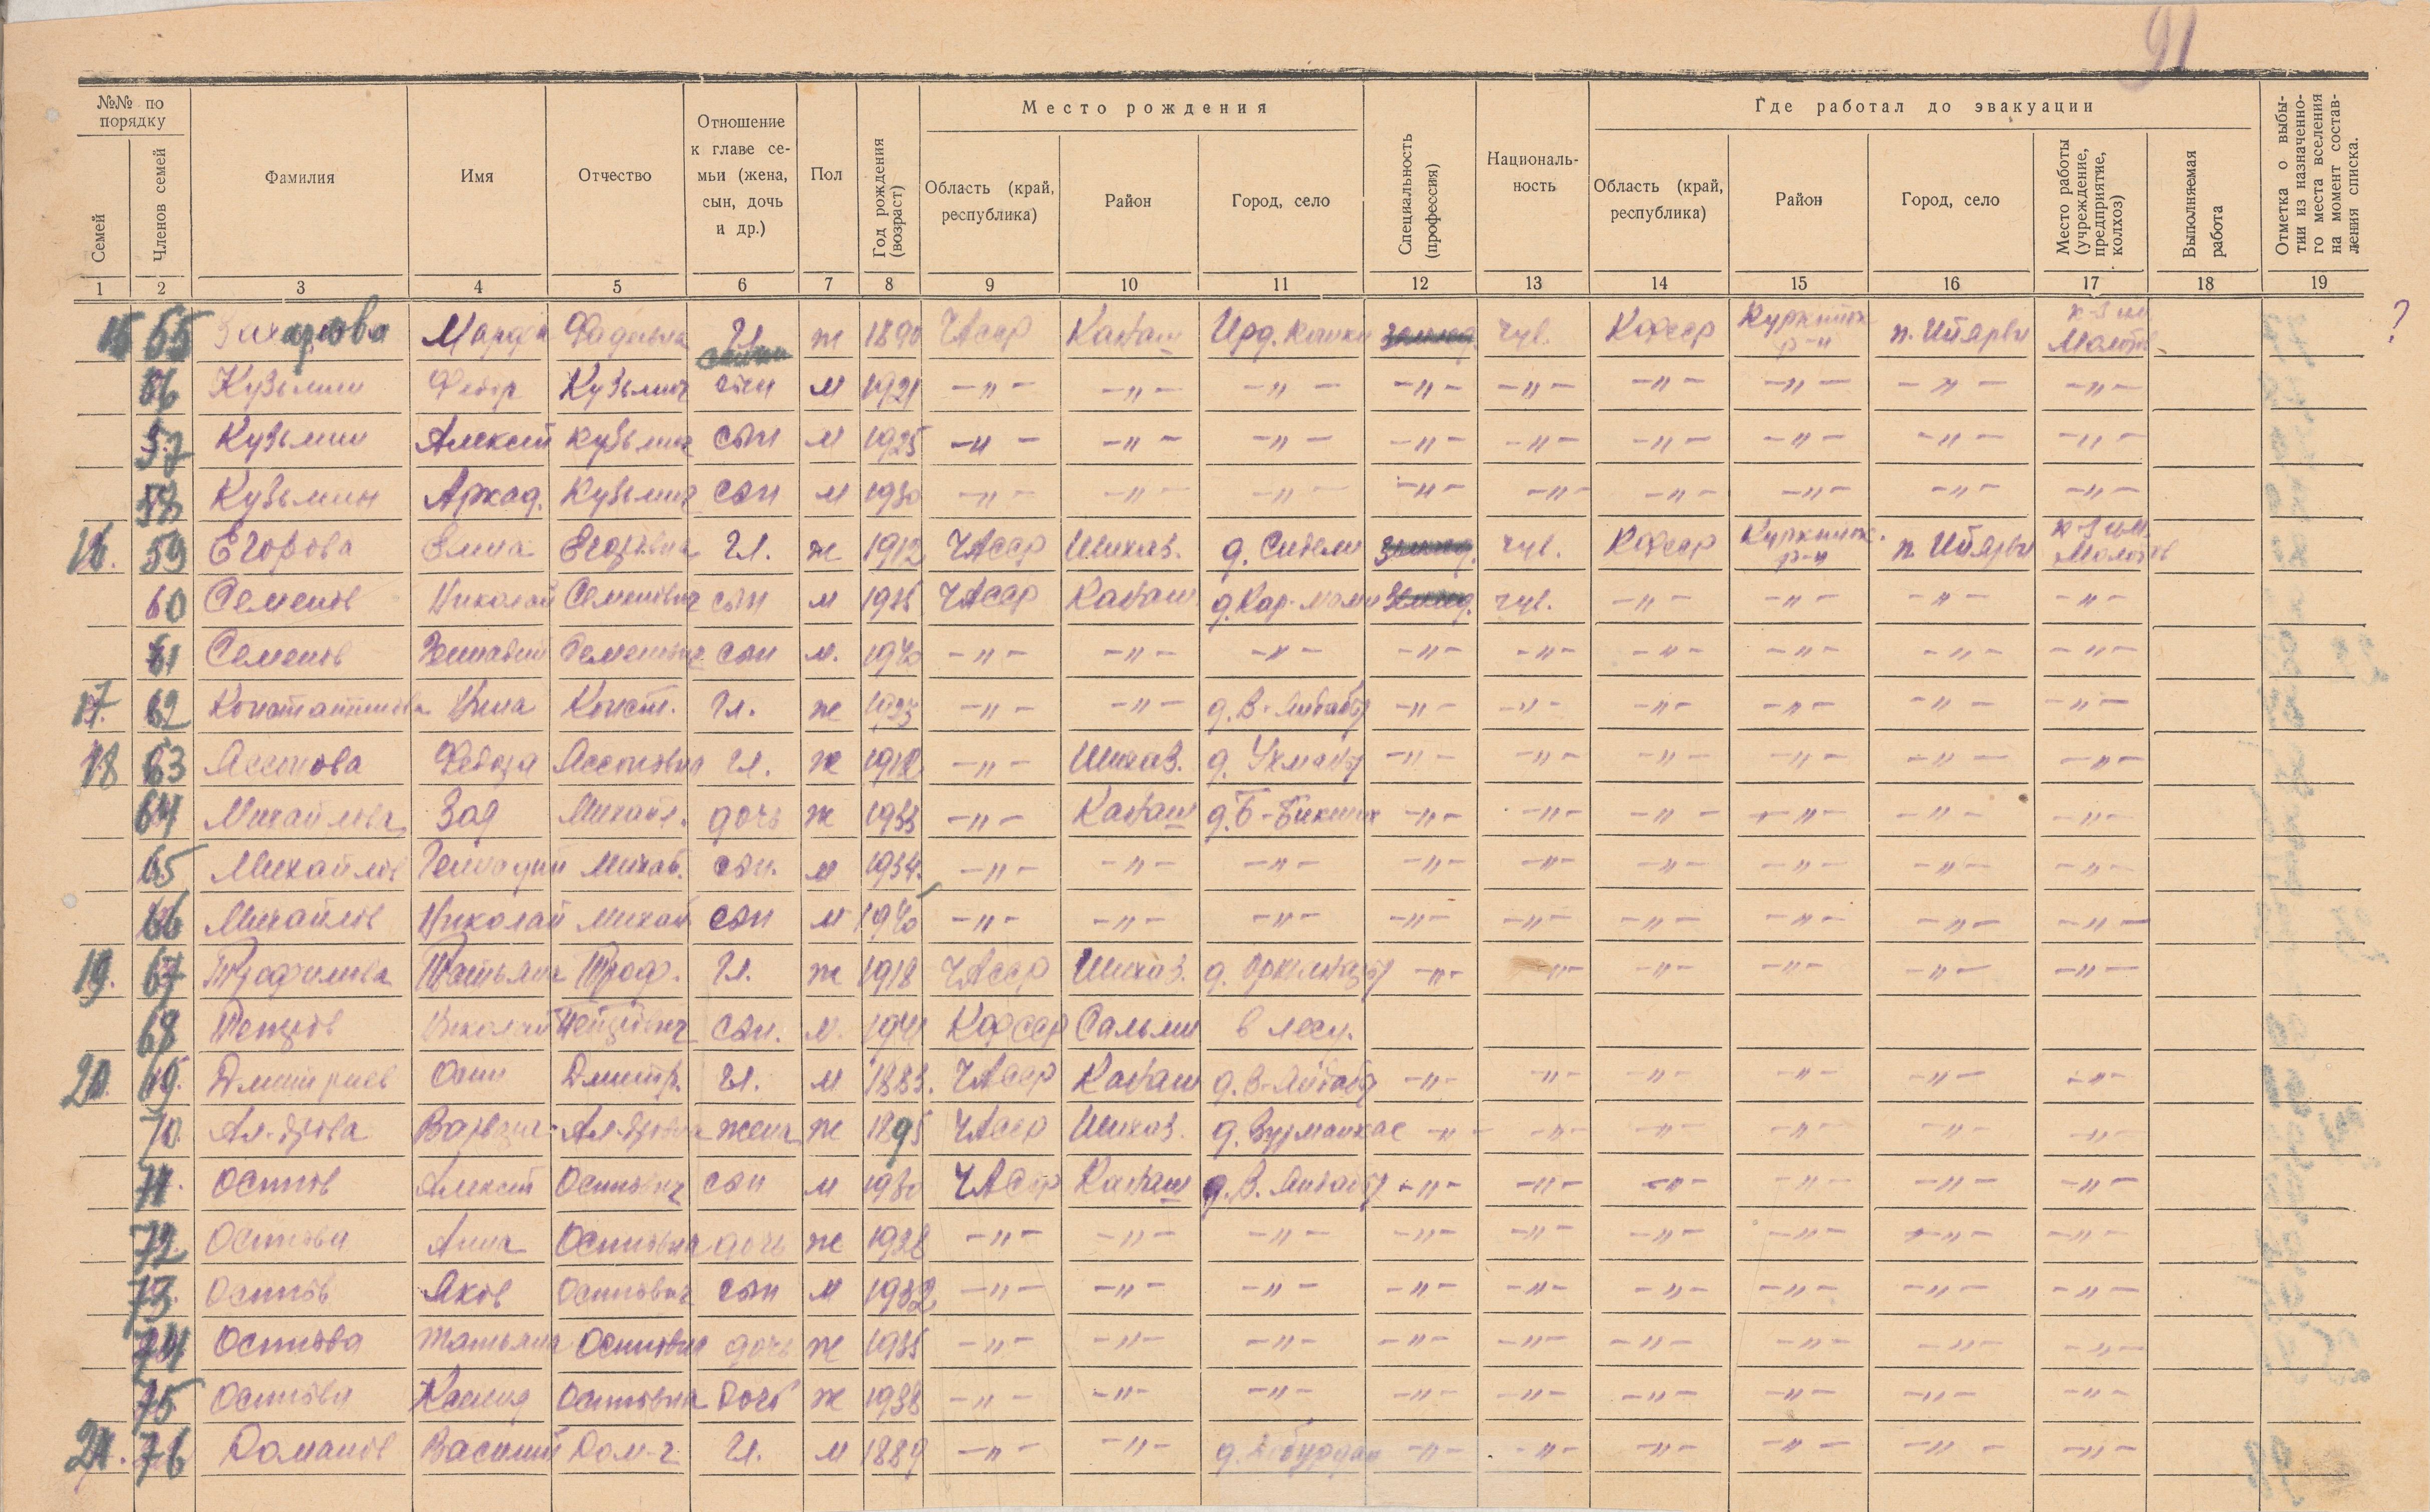 91
№№ по порядку
Место рождения
Где работал до эвакуации
Семей
Членов семей
Фамилия
Имя
Отчество
Отношение к главе семьи (жена, сын, дочь и др.)
Пол
Год рождения (возраст)
Область (край, республика)
Район
Город, село
Специальность (профессия)
Националь-ность
Область (край, республика)
Район
Город, село
Место работы (учреждение, предприятие, колхоз)
Выполняемая работа
Отметка о выбы-тии из назначенно-го места вселения на момент состав-ления списка.
1 2 3 4 5 6 7 8 9 10 11 12 13 14 15 16 17 18 19
15 55 Захарова Марфа Гл. ж 1890 ЧАсср Канаш чув. Кфсср Куркиiок р-н п. Ийярви к-з им Молотов ?
56 Кузьмин Федор Кузьмич сын м 1921 -"- -"- -"- -"- -"- -"- -"- -"- -"-
57 Кузьмин Алексей Кузьмич сын м 1925 -"- -"- -"- -"- -"- -"- -"- -"- -"-
58 Кузьмин Аркад. Кузьмич сын м 1930 -"- -"- -"- -"- -"- -"- -"- -"- -"-
16. 59 Егорова Елена Егоровна Гл. ж 1912 ЧАсср Шихаз. д. Сидели чув. Кфсср Куркиiок. р-н п. Ийярви к-з им. Молотов
60 Семенов Николай Семенович сын м 1935 ЧАсср Канаш чув. -"- -"- -"- -"-
61 Семенов Геннадий Семенович сын м. 1940 -"- -"- -"- -"- -"- -"- -"- -"- -"-
17. 62 Константинова Нина Конст. Гл. ж 1923 -"- -"- -"- -"- -"- -"- -"- -"-
18 63 Федора Гл. ж 1912 -"- Шихаз. д. Ухманы -"- -"- -"- -"- -"- -"-
64 Михайлова Зоя Михайл. дочь ж 1933 -"- Канаш д. Б-Бикших -"- -"- -"- -"- -"- -"-
65 Михайлов Геннадий Михай. сын. м 1934. -"- -"- -"- -"- -"- -"- -"- -"- -"-
66 Михайлов Николай Михай сын м 1940 -"- -"- -"- -"- -"- -"- -"- -"- -"-
19. 67 Трофимова Татьяна Троф. Гл. ж 1918 ЧАсср Шихаз. -"- -"- -"- -"- -"- -"-
68 Петров Николай Петрович сын. м. 1941 Кфсср Сальми в лесу.
20. 69. Дмитриев Осип Дмитр. Гл. м 1883. ЧАсср Канаш -"- -"- -"- -"- -"- -"-
70 Ал-дрова Варвара Ал-дровна жена ж 1895 ЧАсср Шихаз. д. Вурманкас -"- -"- -"- -"- -"- -"-
71. Осипов Алексей Осипович сын м 1930 ЧАсср Канаш -"- -"- -"- -"- -"- -"-
72. Осипова Анна Осиповна дочь ж 1928 -"- -"- -"- -"- -"- -"- -"- -"- -"-
73. Осипов Яков Осипович сын м 1932 -"- -"- -"- -"- -"- -"- -"- -"- -"-
74 Осипова Татьяна Осиповна дочь ж 1935 -"- -"- -"- -"- -"- -"- -"- -"- -"-
75 Осипова Ксения Осиповна дочь ж 1938 -"- -"- -"- -"- -"- -"- -"- -"- -"-
21. 76 Доманов Василий Дом-ч Гл. м 1889 -"- -"- -"- -"- -"- -"- -"- -"-